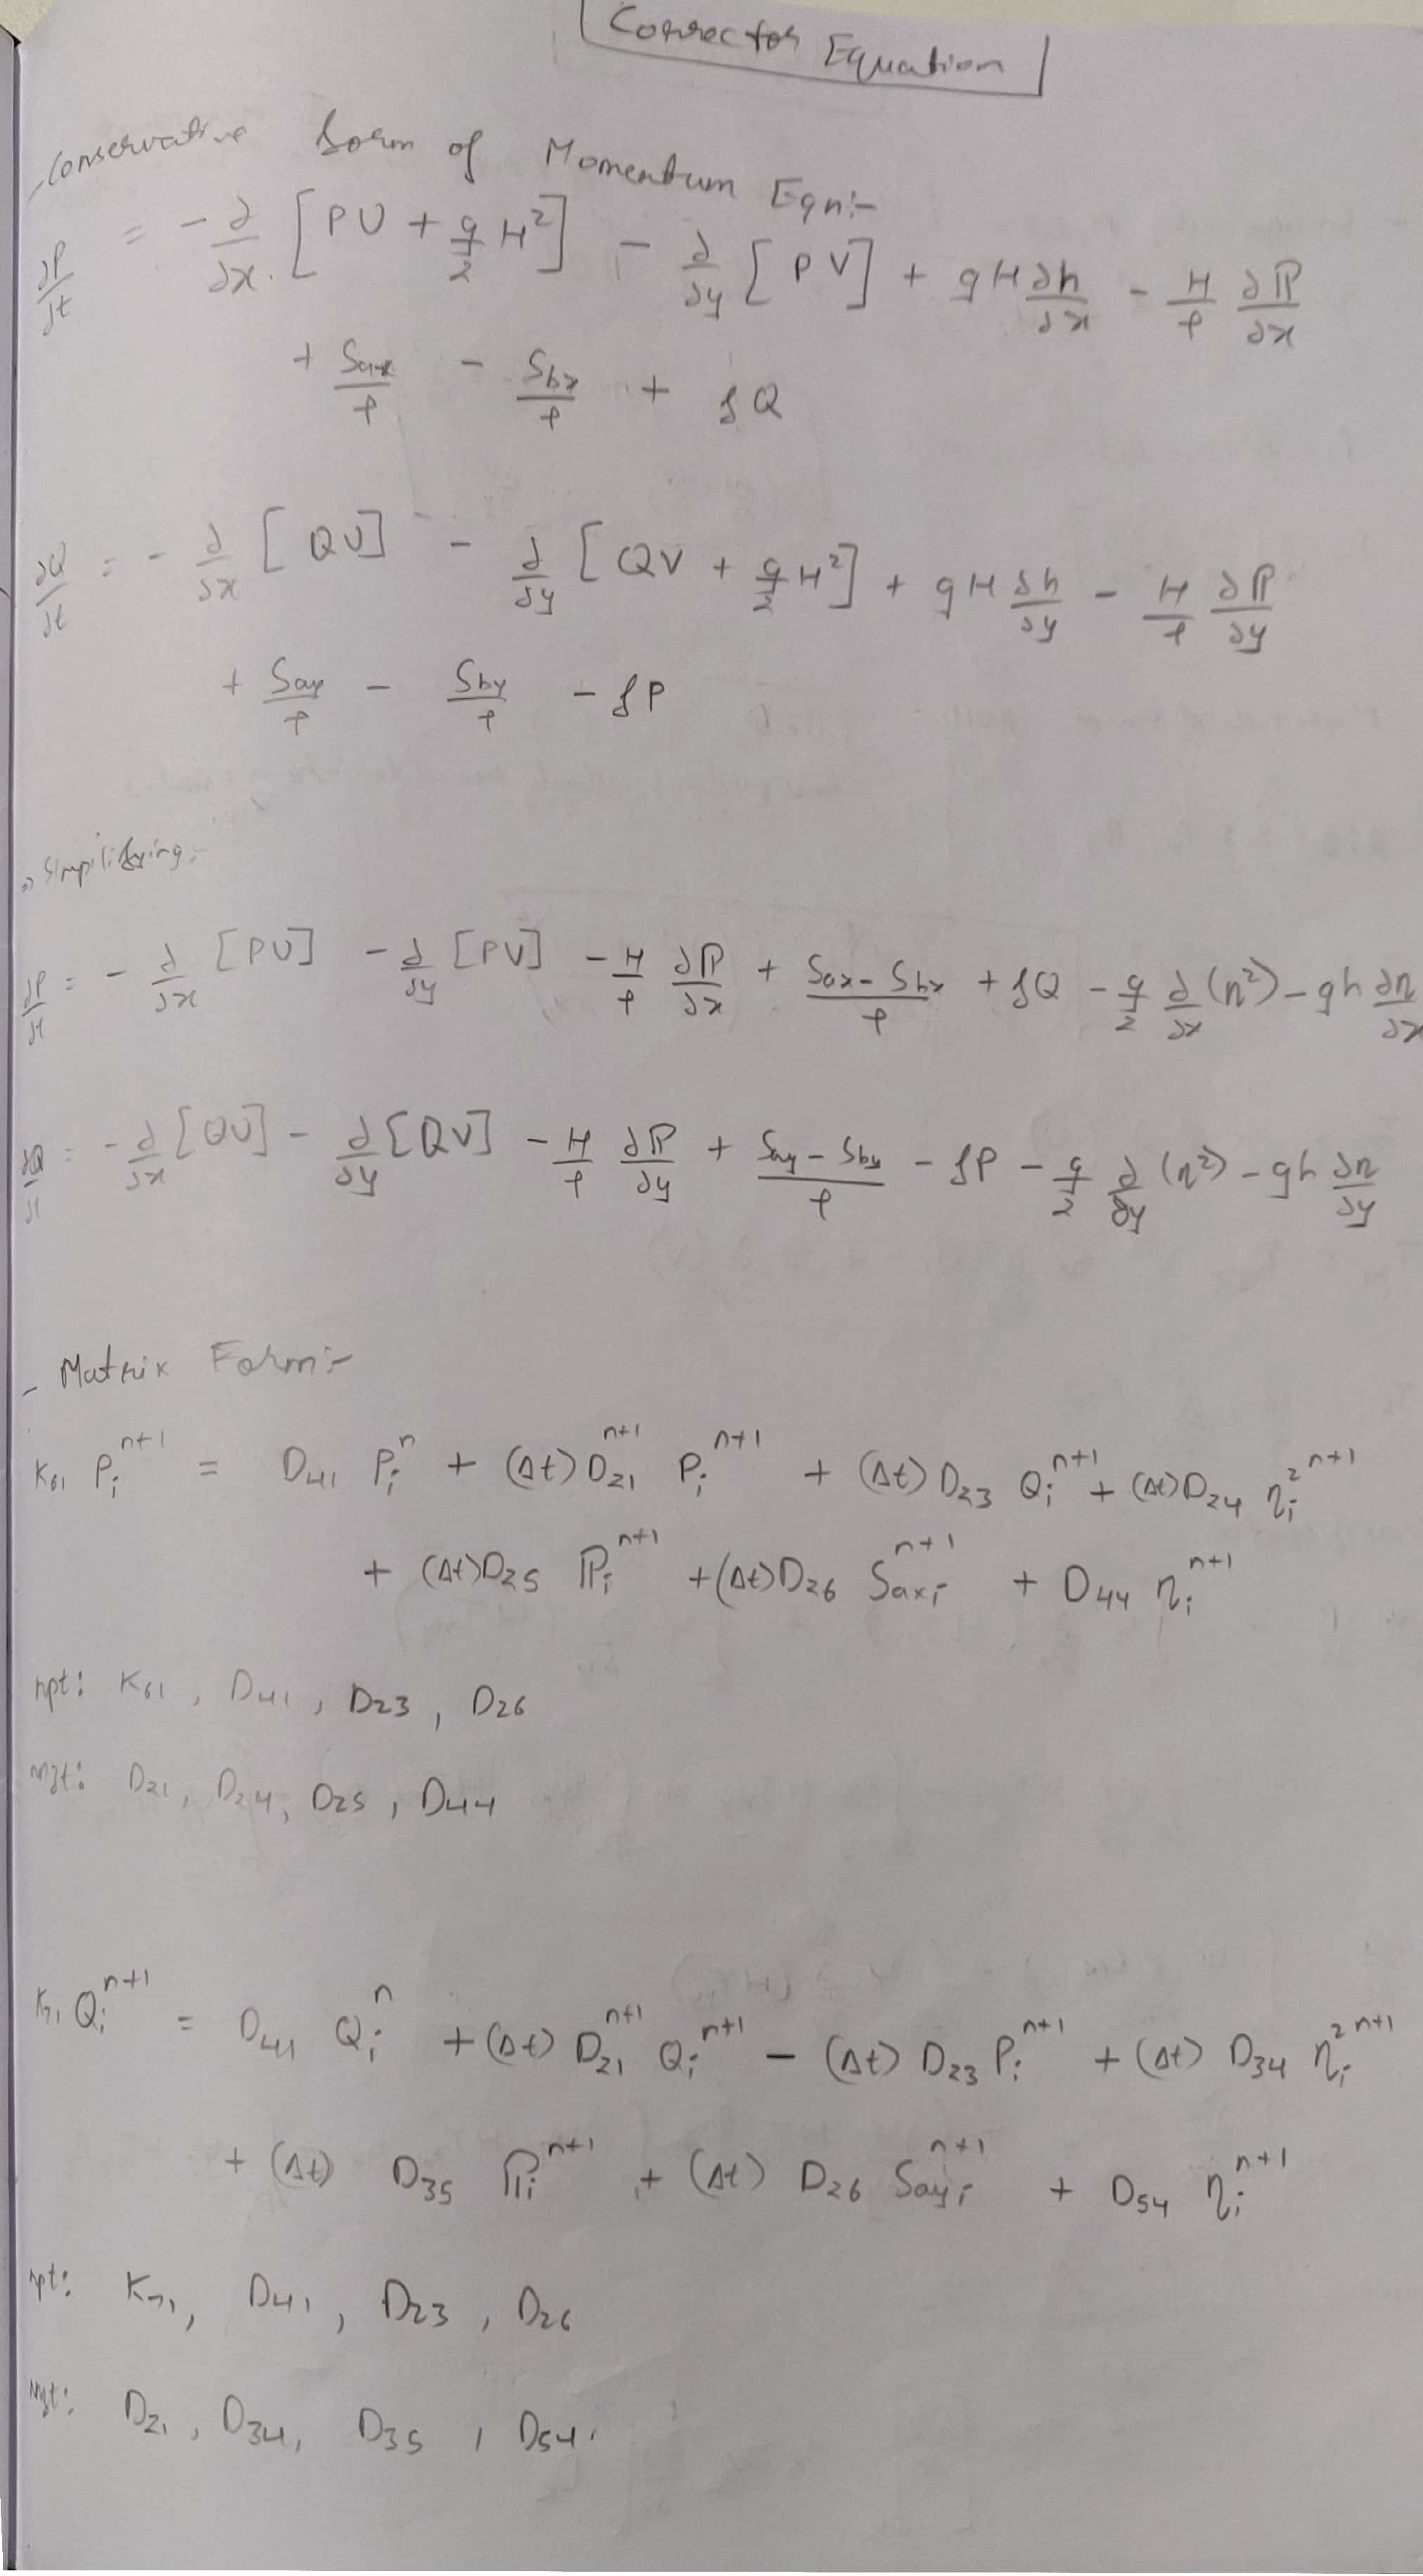 Corrector Equation
Conservative form of Momentum Eqn:-
∂P/∂t = - ∂/∂x [PU + g/2 H²] - ∂/∂y [PV] + gH ∂h/∂x - H/ρ ∂ℙ/∂x
+ Sax/ρ - Sbx/ρ + fQ
∂Q/∂t = - ∂/∂x [QU] - ∂/∂y [QV + g/2 H²] + gH ∂h/∂y - H/ρ ∂ℙ/∂y
+ Say/ρ - Sby/ρ - fP
Simplifying:-
∂P/∂t = - ∂/∂x [PU] - ∂/∂y [PV] - H/ρ ∂ℙ/∂x + (Sax - Sbx)/ρ + fQ - g/2 ∂/∂x (η²) - gh ∂η/∂x
∂Q/∂t = - ∂/∂x [QU] - ∂/∂y [QV] - H/ρ ∂ℙ/∂y + (Say - Sby)/ρ - fP - g/2 ∂/∂y (η²) - gh ∂η/∂y
- Matrix Form:-
K₆₁ Pᵢⁿ⁺¹ = D₄₁ Pᵢⁿ + (Δt) D₂₁ⁿ⁺¹ Pᵢⁿ⁺¹ + (Δt) D₂₃ Qᵢⁿ⁺¹ + (Δt) D₂₄ ηᵢ² ⁿ⁺¹
+ (Δt) D₂₅ ℙᵢⁿ⁺¹ + (Δt) D₂₆ Saxᵢⁿ⁺¹ + D₄₄ ηᵢⁿ⁺¹
npt: K₆₁, D₄₁, D₂₃, D₂₆
D₂₁, D₂₄, D₂₅, D₄₄
K₇₁ Qᵢⁿ⁺¹ = D₄₁ Qᵢⁿ + (Δt) D₂₁ⁿ⁺¹ Qᵢⁿ⁺¹ - (Δt) D₂₃ Pᵢⁿ⁺¹ + (Δt) D₃₄ ηᵢ² ⁿ⁺¹
+ (Δt) D₃₅ ℙᵢⁿ⁺¹ + (Δt) D₂₆ Sayᵢⁿ⁺¹ + D₅₄ ηᵢⁿ⁺¹
npt: K₇₁, D₄₁, D₂₃, D₂₆
D₂₁, D₃₄, D₃₅, D₅₄.